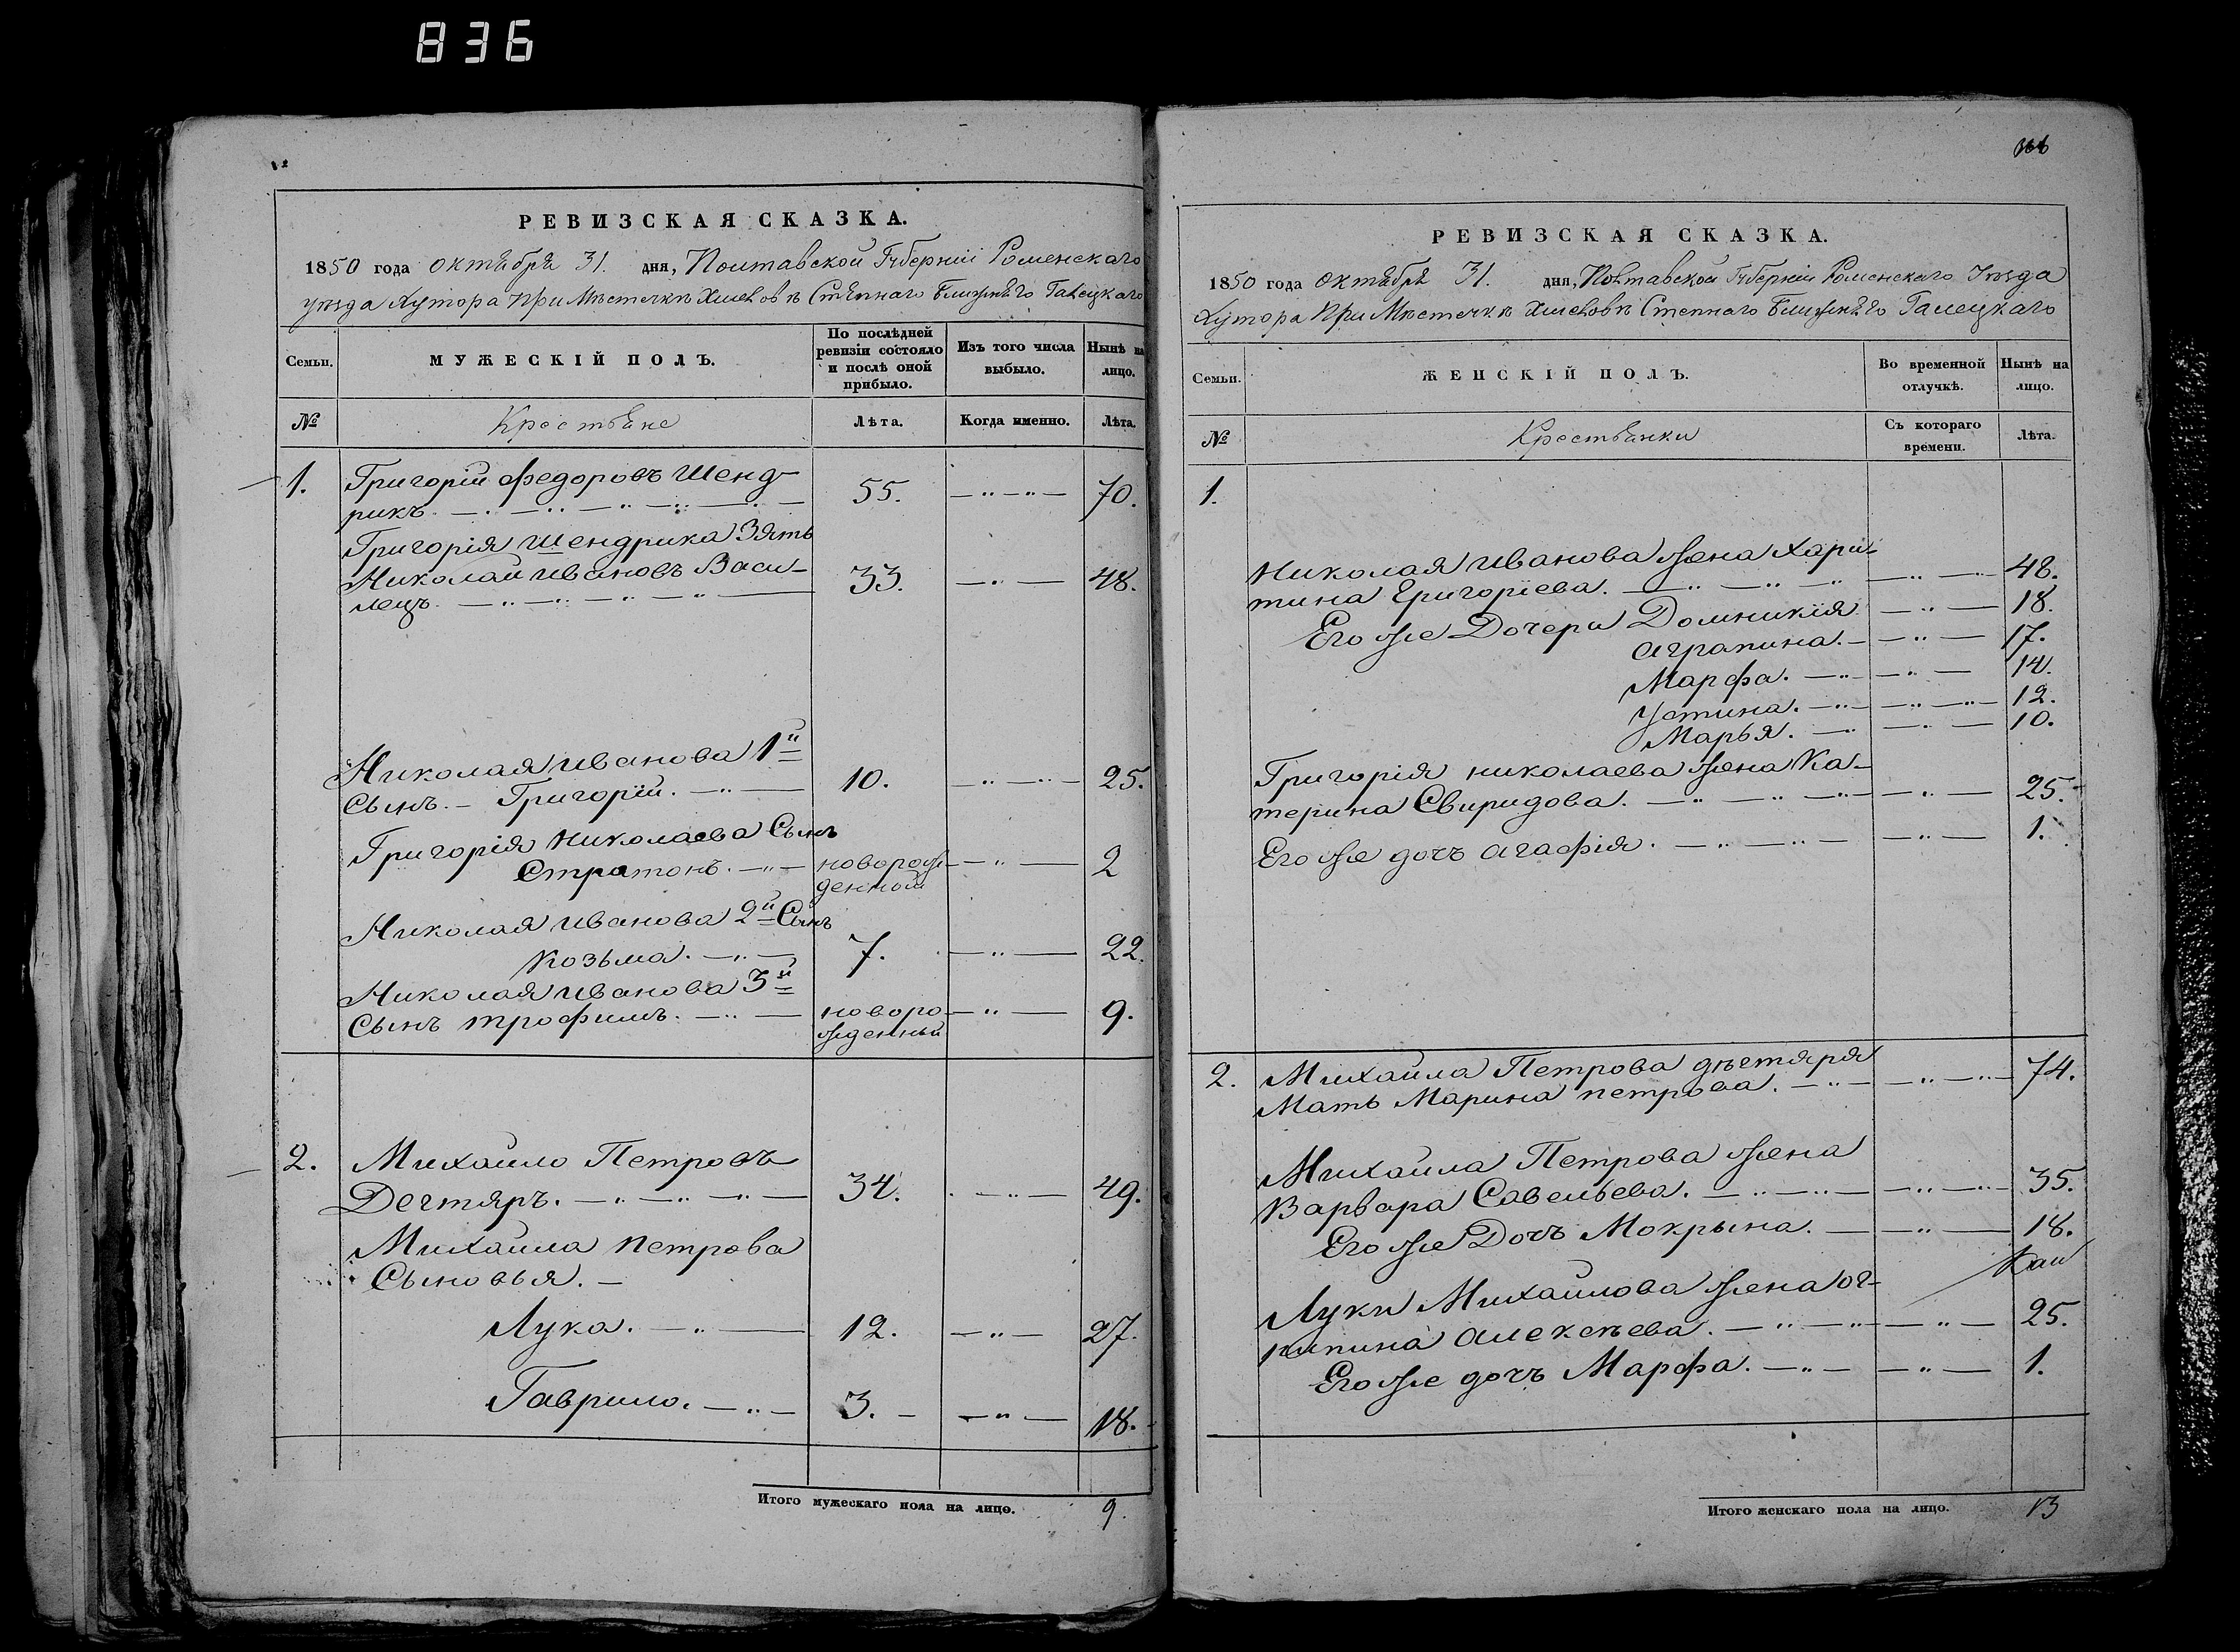 836
РЕВИЗСКАЯ СКАЗКА.
1850 года октября 31. дня, Полтавской Губерніи Роменскаго
уѣзда Хутора при Мѣстечкѣ Хмеловѣ Степнаго Ближняго Галецкаго
Семьи. МУЖЕСКІЙ ПОЛЪ. По послѣдней ревизіи состояло и послѣ оной прибыло. Изъ того числа выбыло. Нынѣ на лицо.
№ Крестьяне Лѣта. Когда именно. Лѣта.
1. Григорій федоровъ Шенд-
рикъ. 55. 70.
Григорія Шендрика Зять
Николай ивановъ Васи-
лецъ. 33. 48.
Николая иванова 1й
Сынъ. Григорій. 10. 25.
Григорія николаева Сынъ
Стратонъ. новорож
денной 2
Николая иванова 2й Сынъ
Козьма. 7. 22.
Николая иванова 3й
Сынъ трофимъ. новоро
жденный 9.
2. Михайло Петровъ
Дегтяръ. 34. 49.
Михайла петрова
Сыновья.
Лука. 12. 27.
Гаврило. 3. 18.
Итого мужескаго пола на лицо. 9.
РЕВИЗСКАЯ СКАЗКА.
1850 года октября 31. дня, Полтавской Губерніи Роменскаго Уѣзда
Хутора при Мѣстечкѣ Хмеловѣ Степнаго Ближняго Галецкаго
Семьи. ЖЕНСКІЙ ПОЛЪ. Во временной отлучкѣ. Нынѣ на лицо.
№ Крестьянки Съ котораго времени. Лѣта.
1.
Николая иванова жена Хари-
тина Григоріева. 48.
Его же Дочери Домникія 18.
аграпина. 17.
Марфа. 14.
Устина. 12.
Марья. 10.
Григорія николаева жена Ка-
терина Свиридова. 25.
Его же дочъ агафія. 1.
2. Михайла Петрова дѣгтяря
Мать Марина петрова. 74.
Михайла Петрова жена
Варвара Савельева. 35.
Его же Дочъ Мокрына. 18.
Луки Михайлова жена ог-
рипина алексѣева. 25.
Его же дочъ Марфа. 1.
Итого женскаго пола на лицо. 13